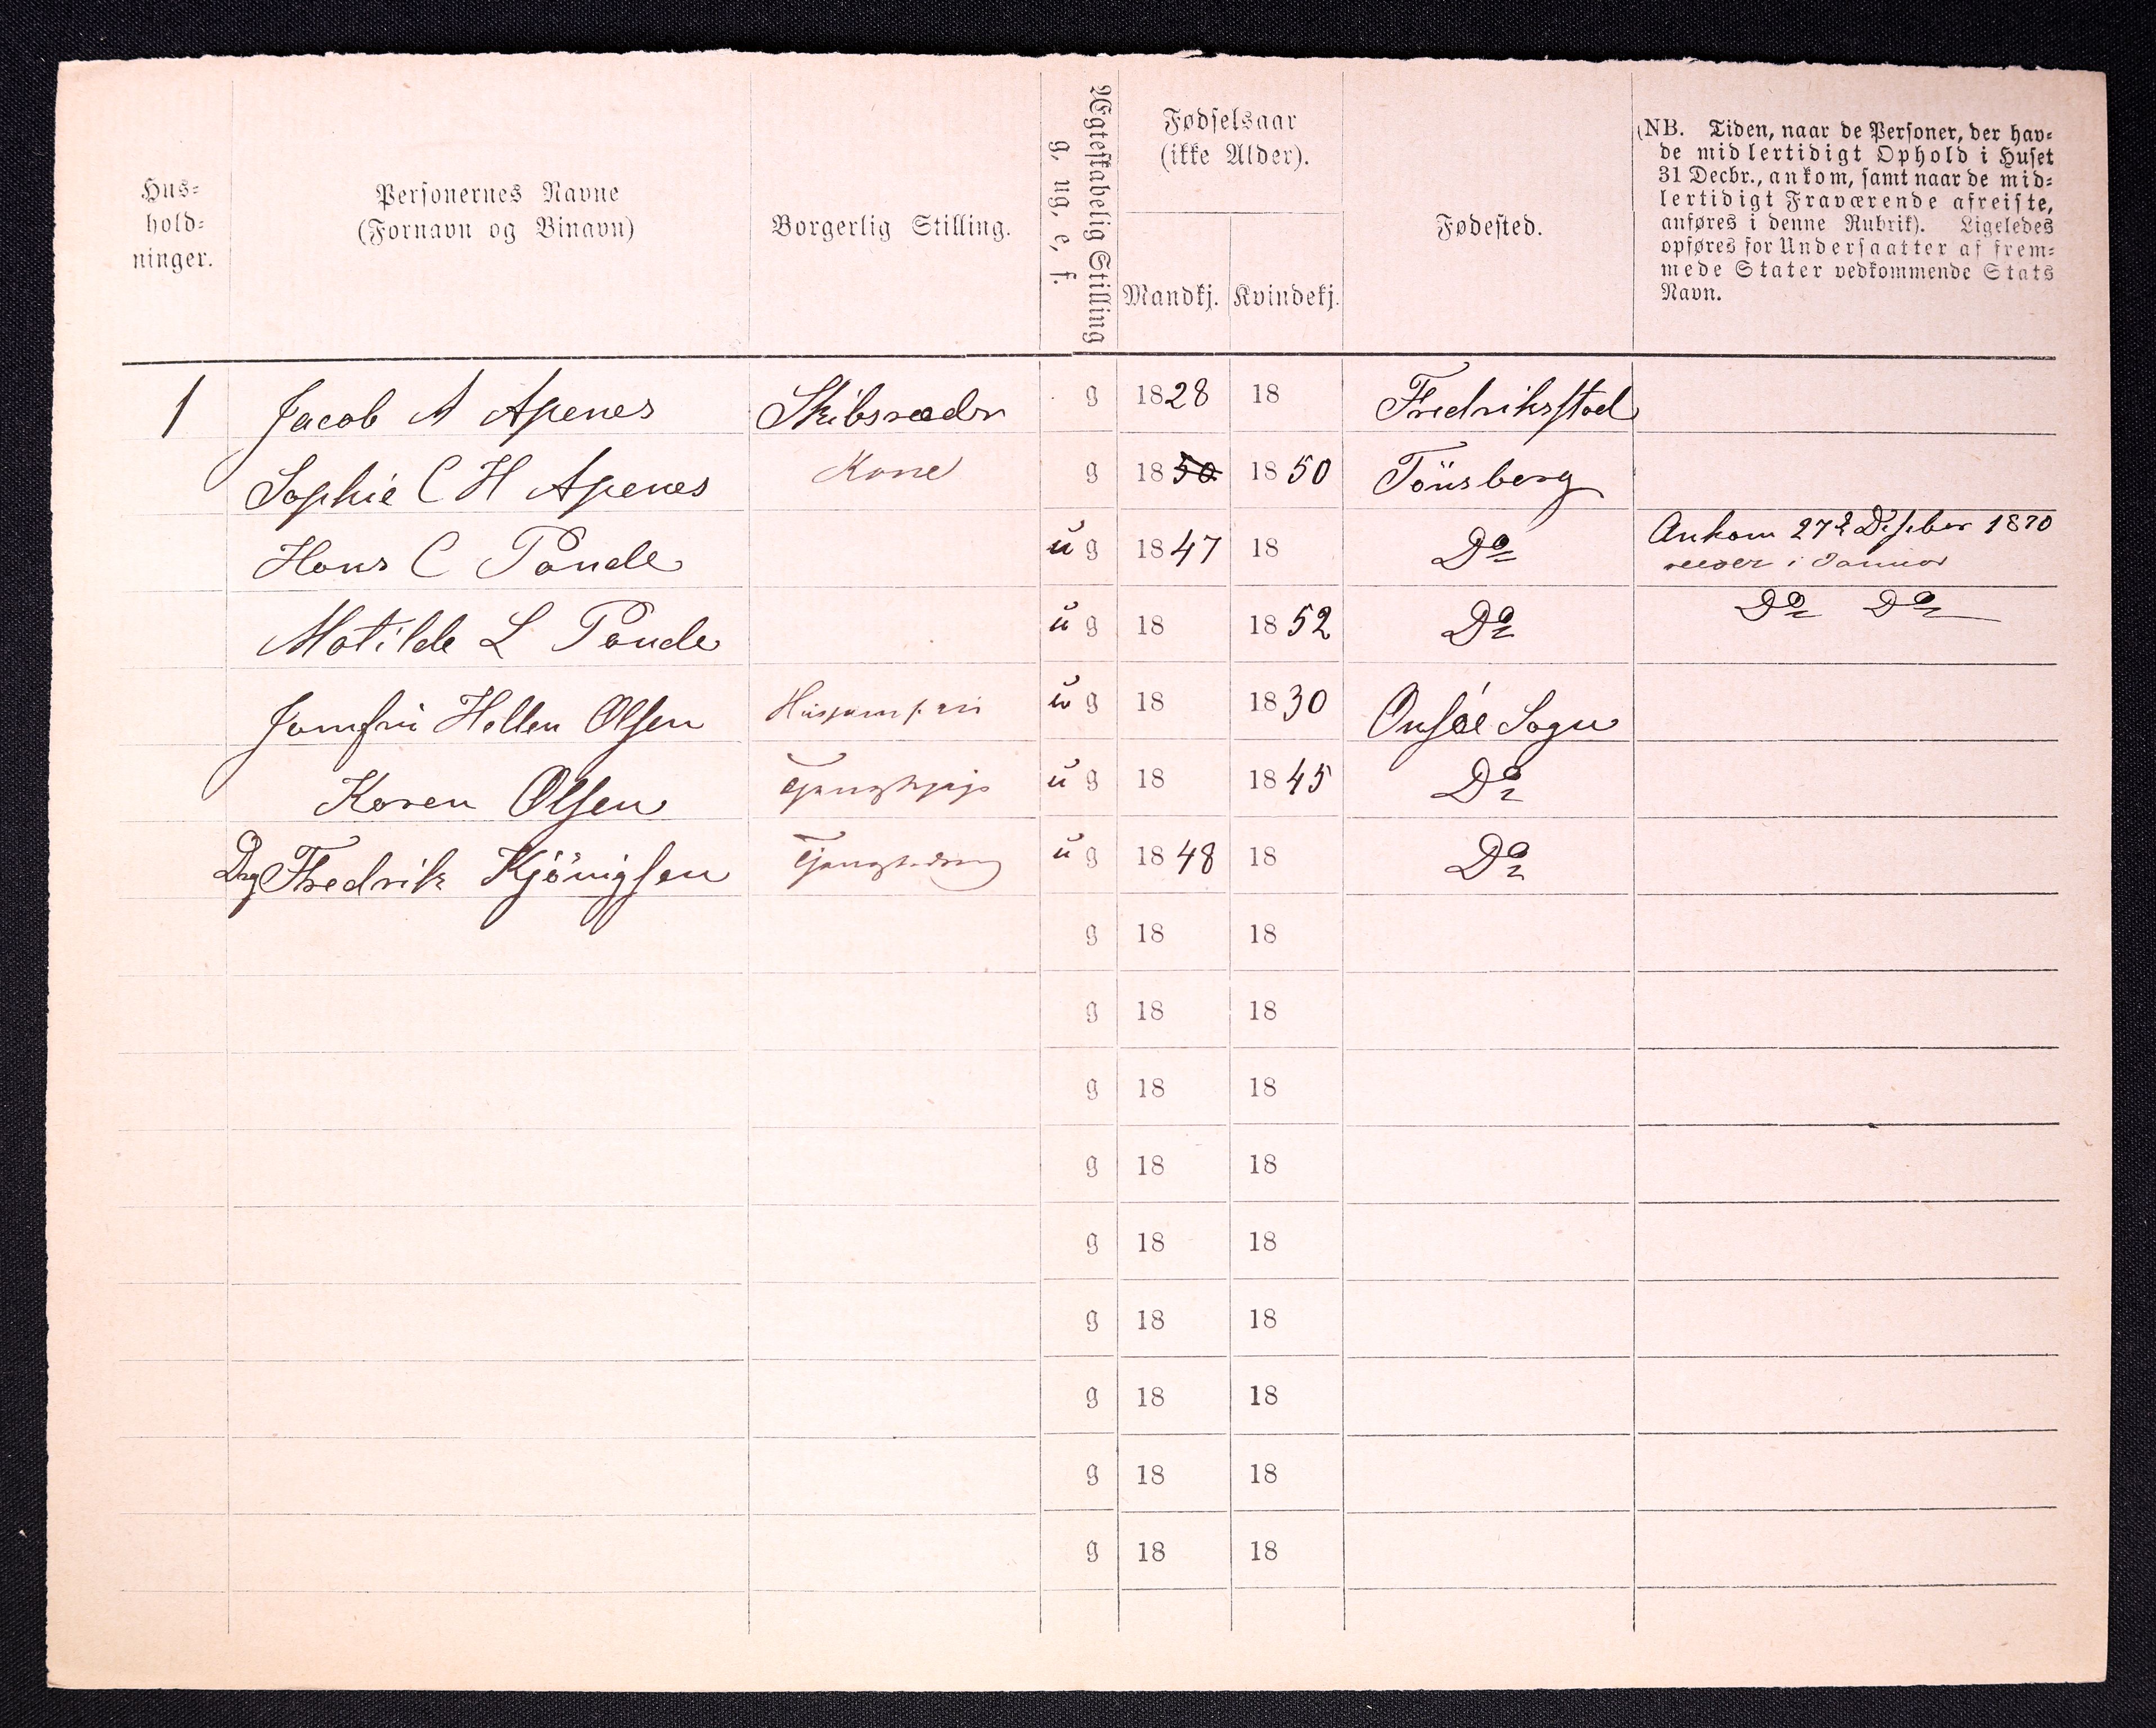 Hus=
hold=
ninger.
Personernes Navne
(Fornavn og Binavn)
Borgerlig Stilling.
Ægteskabelig Stilling
g, ug, e, f.
Fødselsaar
(ikke Alder).
Mandkj. Kvindekj.
Fødested.
(NB. Tiden, naar de Personer, der hav=
de midlertidigt Ophold i Huset
31 Decbr., ankom, samt naar de mid=
lertidigt Fraværende afreiste,
anføres i denne Rubrik). Ligeledes
opføres for Undersaatter af frem=
mede Stater vedkommende Stats
Navn.
1 Jacob A Apenes Skibsræder g 1828 18 Fredrikstad
Sophie C H Apenes Kone g 1850 1850 Tönsberg
Hans C Paude ug 1847 18 Do Ankom 27de Desember 1870
i Januar
Matilde L Paude ug 18 1852 Do Do Do
Jomfru Hellen Olsen Husjomfru ug 18 1830 Onsøe Sogn
Karen Olsen Tjenestepige ug 18 1845 Do
Drg Fredrik Kjönigsen Tjenestedreng ug 1848 18 Do
g 18 18
g 18 18
g 18 18
g 18 18
g 18 18
g 18 18
g 18 18
g 18 18
g 18 18